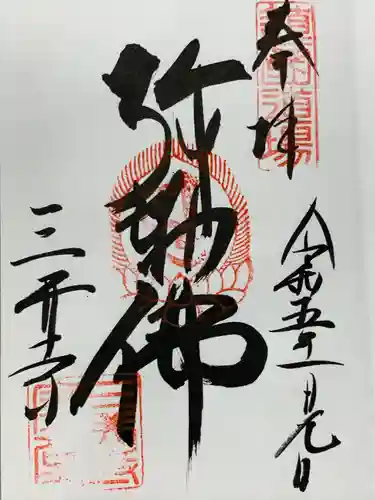 奉拝
弥勒佛
三井寺
令和五年一月元日